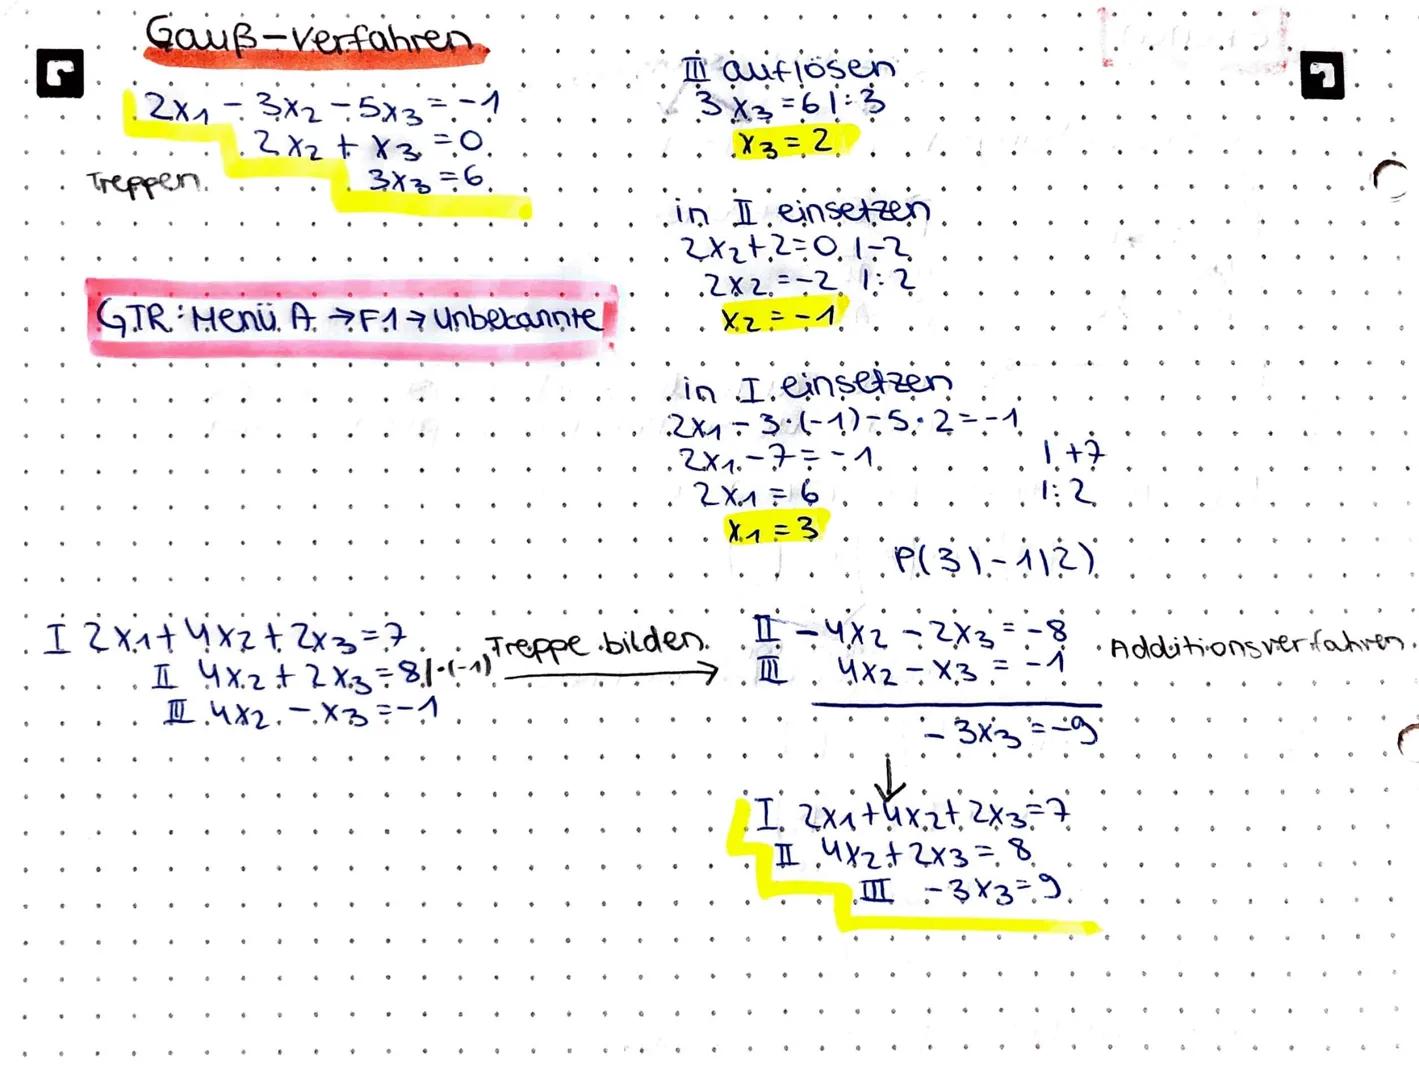 Gauß-Verfahren
2x₁ - 3x₂ - 5x₃ = -1
2x₂ + x₃ = 0
3x₃ = 6
Treppen
GTR: Menü A → F1 → Unbekannte
III auflösen
3x₃ = 6 | : 3
x₃ = 2
in II einsetzen
2x₂ + 2 = 0 | -2
2x₂ = -2 | : 2
x₂ = -1
in I einsetzen
2x₁ - 3·(-1) - 5·2 = -1
2x₁ - 7 = -1 | +7
2x₁ = 6 | : 2
x₁ = 3
P(3|-1|2)
I 2x₁ + 4x₂ + 2x₃ = 7
II 4x₂ + 2x₃ = 8 | ·(-1)
III 4x₂ - x₃ = -1
Treppe bilden
II -4x₂ - 2x₃ = -8
III 4x₂ - x₃ = -1
Additionsverfahren
-3x₃ = -9
I 2x₁ + 4x₂ + 2x₃ = 7
II 4x₂ + 2x₃ = 8
III -3x₃ = 9